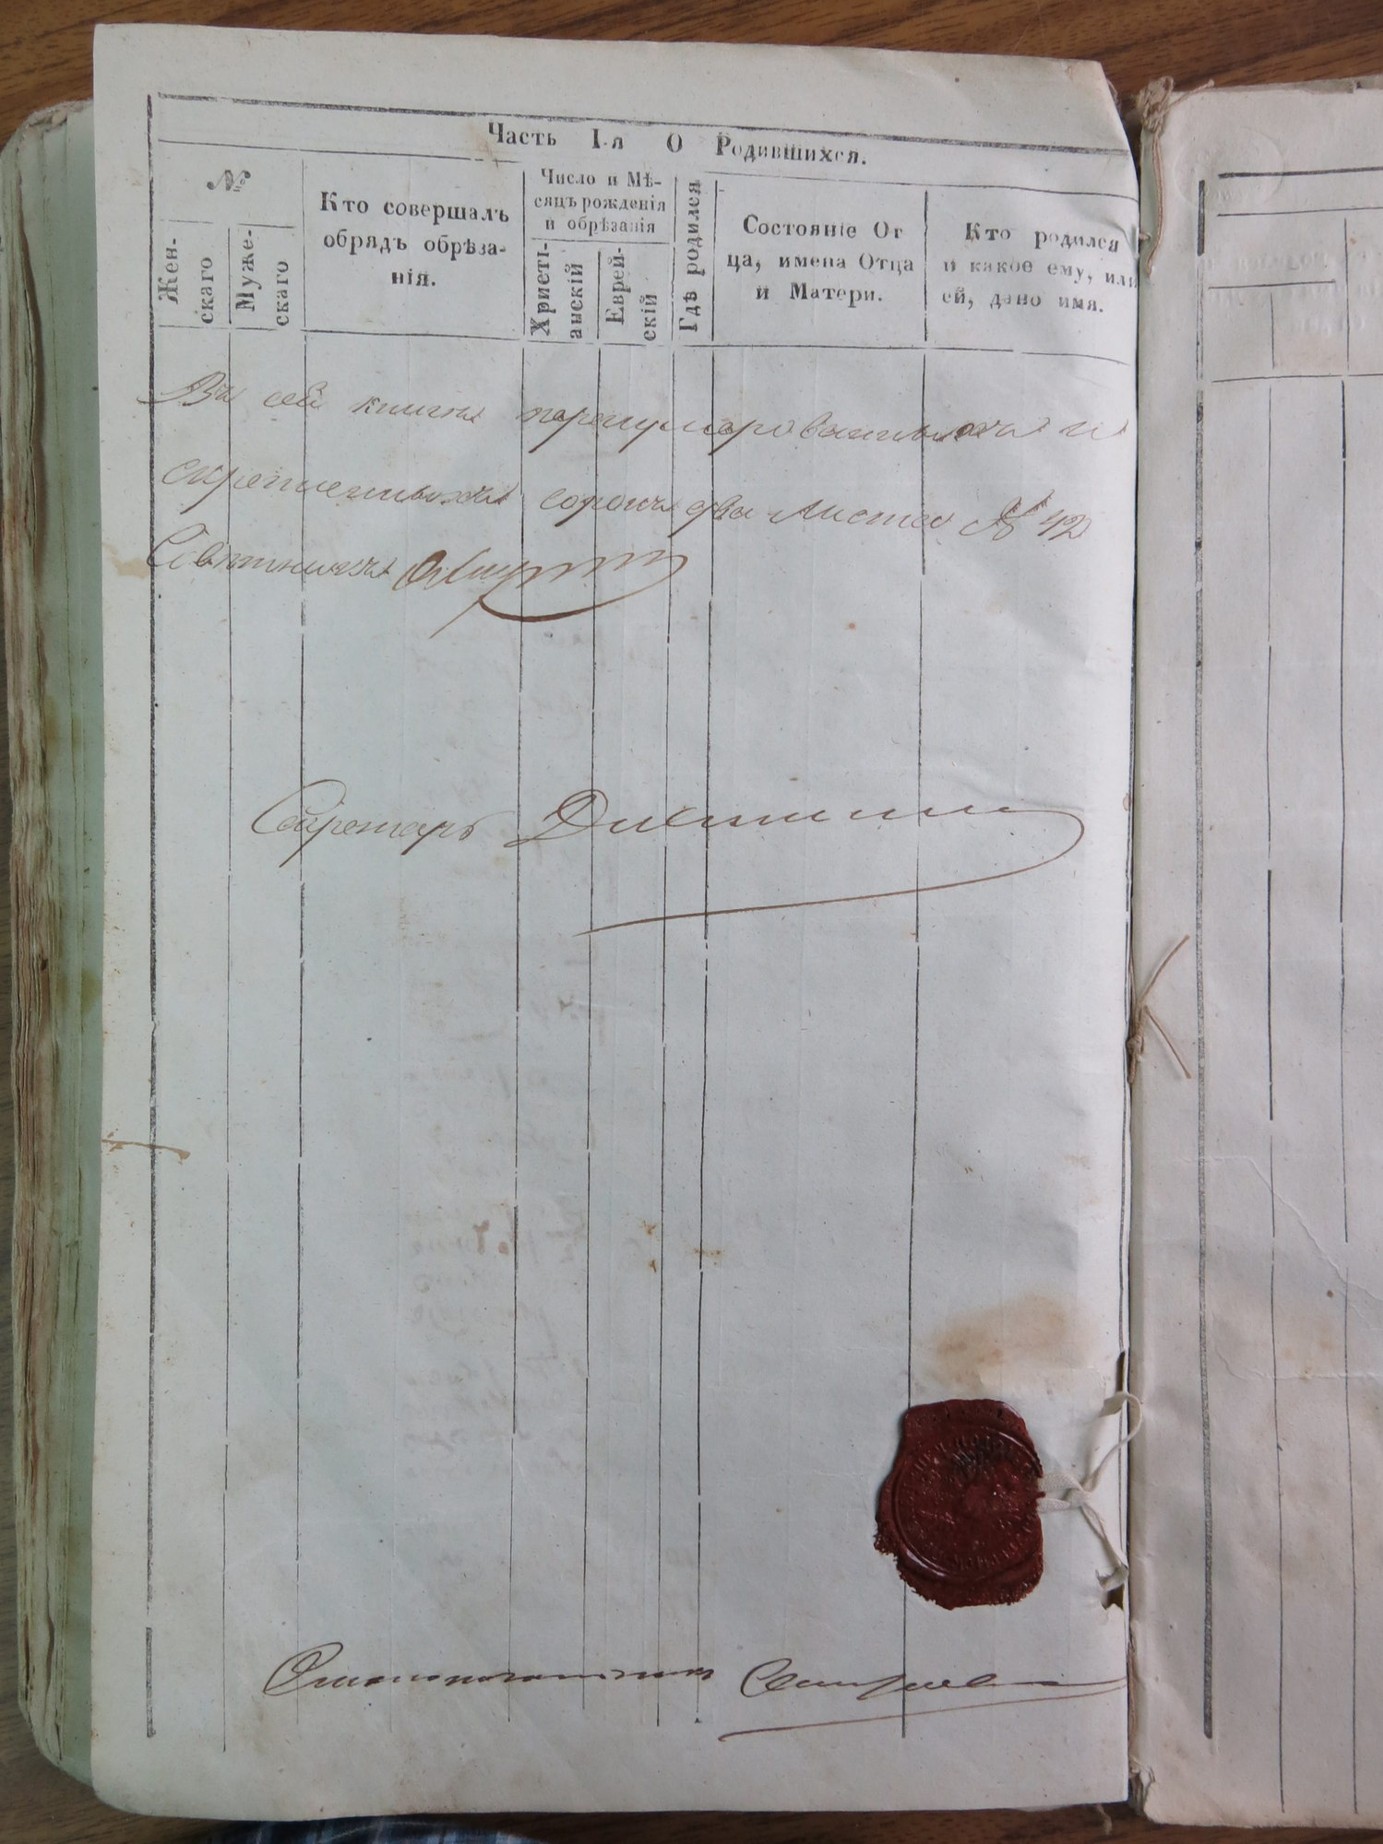 Часть I-я О Родившихся.
№
Жен-
скаго
Муже-
скаго
Кто совершалъ
обрядъ обрѣза-
нія.
Число и Мѣ-
сяцъ рожденія
и обрѣзанія
Христі-
анскій
Еврей-
скій
Гдѣ родился
Состояніе От
ца, имена Отца
и Матери.
Кто родился
и какое ему, или
ей, дано имя.
Въ сей книгѣ перенумерованныхъ и
скрепленныхъ сорокъ два листа № 42
Совѣтникъ
Секретарь
Столоначальникъ